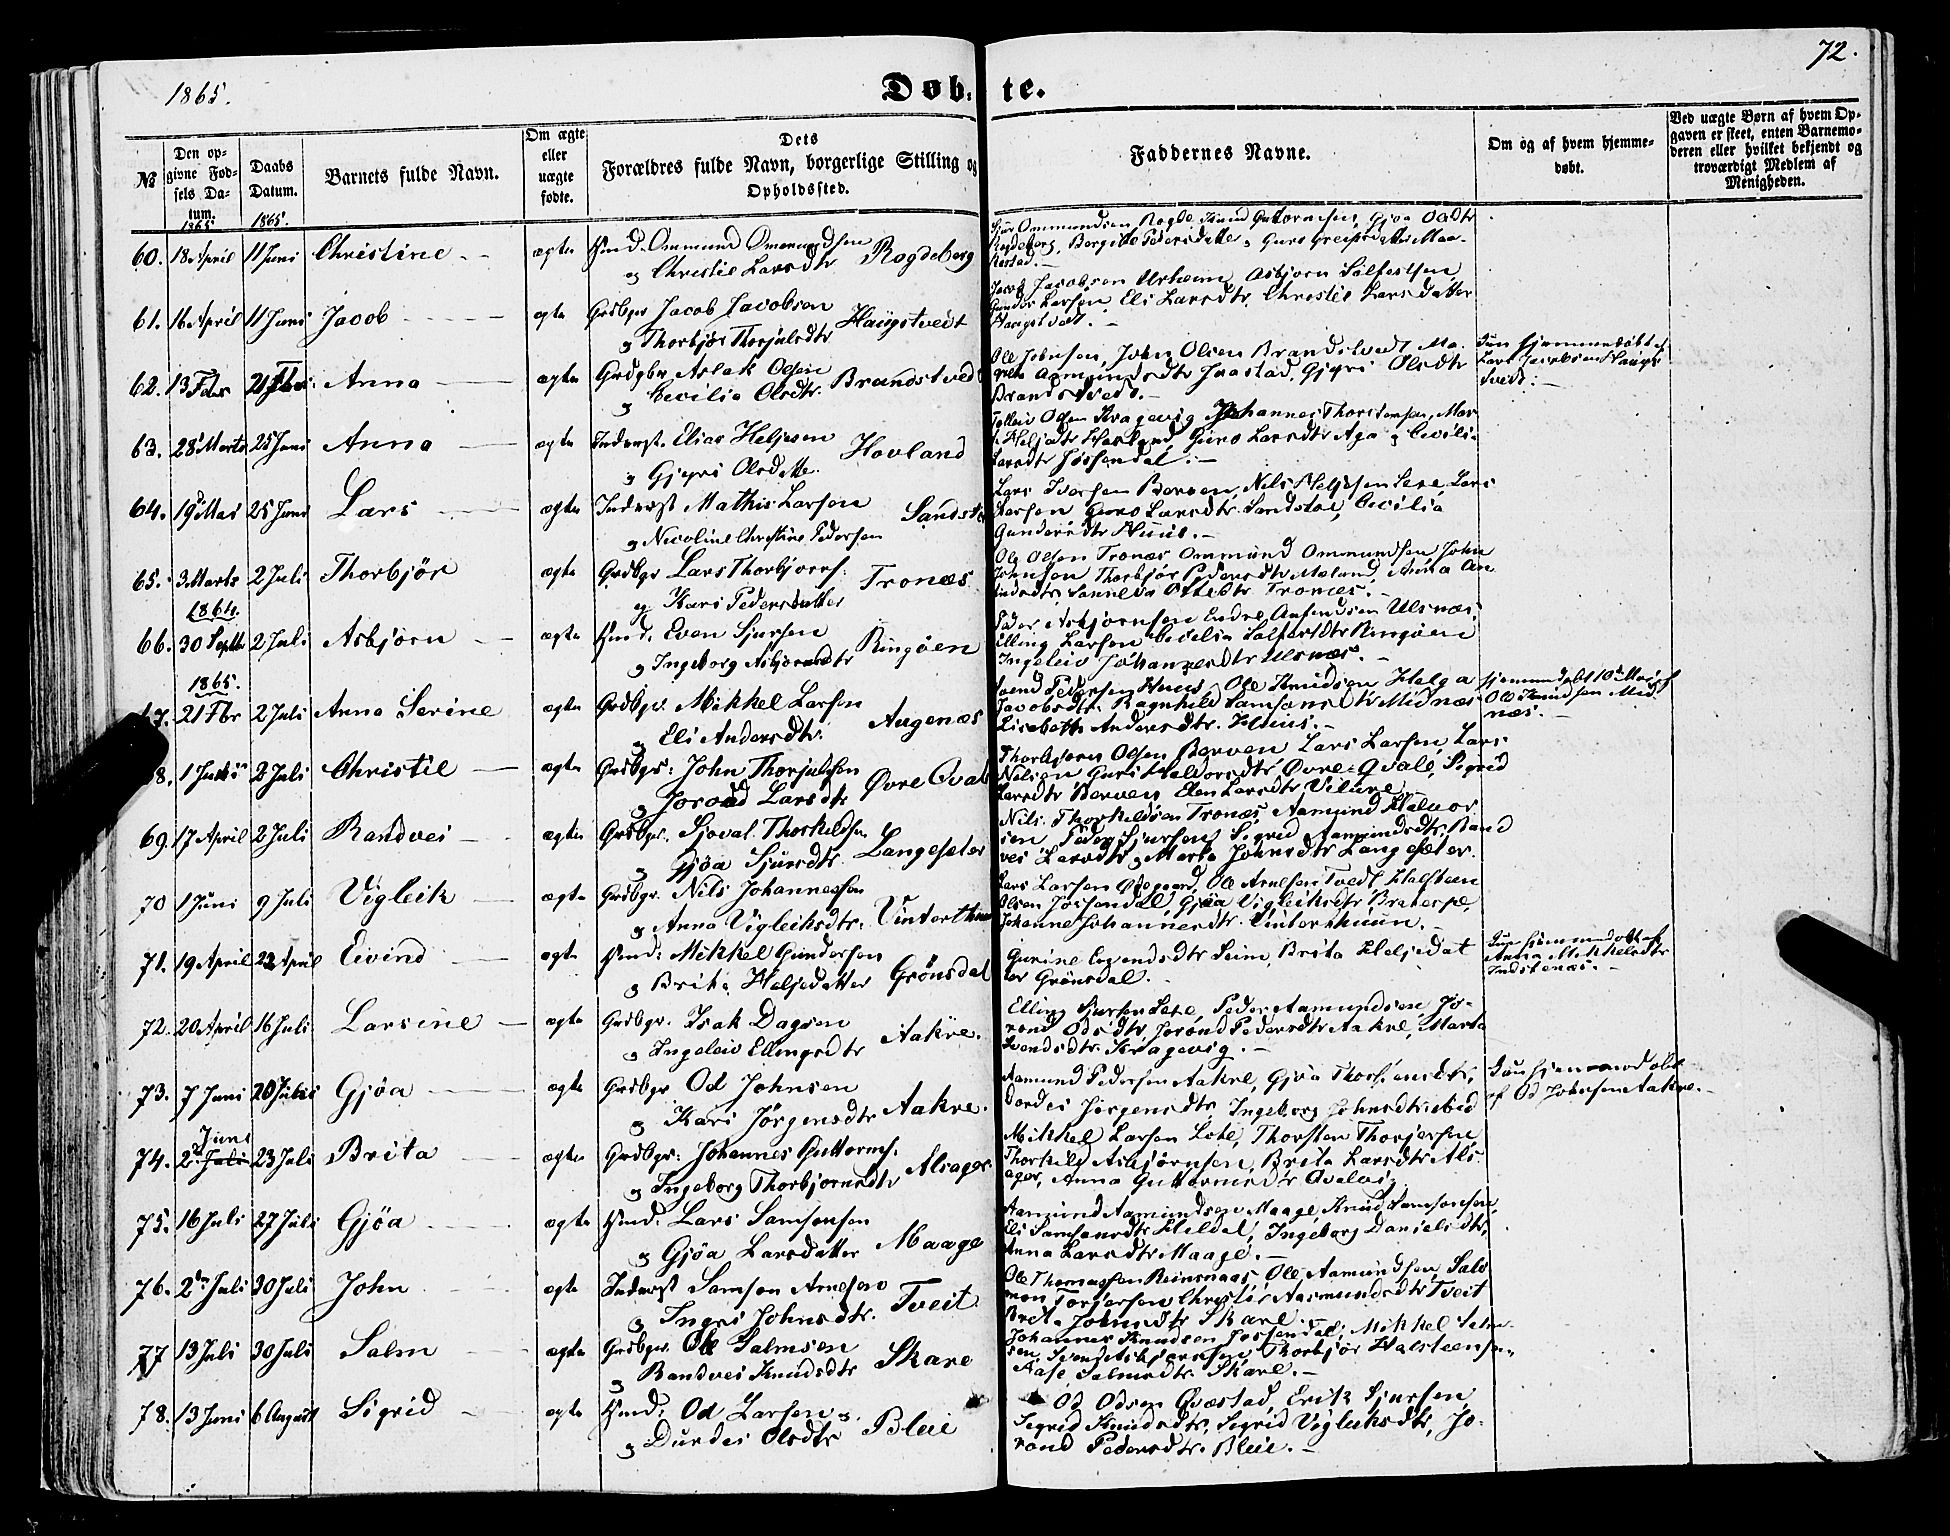 1865.
72.
Døb- te.
№
Den op-
givne Fød-
sels Da-
tum.
1865
Daabs
Datum.
1865.
Barnets fulde Navn.
Om ægte
eller
uægte
fødte.
Dets
Forældres fulde Navn, borgerlige Stilling og
Opholdssted.
Faddernes Navne.
Om og af hvem hjemme-
døbt.
Ved uægte Børn af hvem Op-
gaven er skeet, enten Barnemo-
deren eller hvilket bekjendt og
troværdigt Medlem af
Menigheden.
60. 18 April 11 Juni Christine ægte Ommund Ommundsen
og Christie Larsdtr Rogdeberg
Ommundsen Rogde Guttormsen, Gjøa Odsdtr
Rogdeberg, Bergitte Pedersdatter, Guro
61. 16 April 11 Juni Jacob ægte Grdbgr Jacob Jacobsen
og Thorbjør Thorjulsdtr Haugstvedt
Jacob Jacobsen Urheim, Asbjørn
Gunder Larsen, Eli Larsdtr, Christie Larsdatter
Haugstvedt.
62. 13 Febr Anna ægte Grdgbr Aslak Olsen
og Cecilia Olsdtr. Brandstvedt
Ole Johnsen, John Olsen Brandstvedt, Ma-
grete Aamundsdtr Jaastad, Gjyri Olsdtr
Brandstvedt.
hjemmedøbt af
Lars Jacobsen Haugs-
tvedt.
63. 28 Marts 25 Juni Anna ægte Inderst. Elias Heljesen
og Gjyri Olsdatter. Hovland
Olsen Kragevig, Johannes Thorstensen, Mar-
Heljedtr Hovland, Guro Larsdtr Aga, Cecilia
Larsdtr Jøssendal.
64. 19 Mai 25 Juni Lars ægte Inderst Mathis Larsen
og Nicoline Christine Pedersen
Lars Iversen Berven, Nils Lars
Larsen Guro Larsdtr. Sandstø, Cecilia
Gundersdtr Huus.
65. 3 Marts 2 Juli Thorbjør ægte Grdbgr Lars Thorbjørns:
og Kari Pedersdatter Tronæs
Ole Olsen Tronæs Ommund Ommundsen John
Johnsen Thorbjør Pedersdtr Mæland, Anna
Tronæs.
1864.
66. 30 Septbr 2 Juli Asbjørn ægte Even Sjursen
og Ingeborg Asbjørnsdtr Ringøen
Peder Asbjørnsen Endre Ulsnæs
Elling Larsen Cecilia Ringøen
Ingeleiv Johannesdtr Ulsnæs.
1865.
67. 21 Fbr 2 Juli Anna Serine ægte Grdbgr. Mikkel Larsen
og Eli Andersdtr: Augenæs
Svend Pedersen Huus, Ole Knudsen Helga
Jacobsdtr. Ragnhild Samsonsdtr Midnæs
Lisabeth Andersdtr. Huus.
hjemmedøbt
Ole Knudsen Mid-
næs.
68. 2 Juli Christie ægte Grdbgr: John Thorjulsen
og Jorond Larsdtr Øvre Qvale
Thorbjørn Olsen Berven Lars Larsen, Lars
Nilsen Guri Haldorsdtr Øvre-Qvale, Sigrid
Larsdtr Berven Elen Larsdtr Vilure.
69. 17 April 2 Juli Randvei ægte Grdbgr. Sjoval. Thorkeldsen
og Gjøa Sjursdtr. Langesæter
Nils. Thorkeldsen Tronæs, Aamund Halvor-
sen Peder Sjursen, Sigrid Aamundsdtr, Rand-
vei Larsdtr, Marta Johnsdtr Langesæter.
70 1 Juni 9 Juli Vigleik ægte Grdbgr. Nils Johannesen
og Anna Vigleiksdtr. Vinterthuun
Lars Larsen Ødegaard, Ole Arnesen Tvedt, Halsteen
Olsen Jøssendal, Gjøa Vigleiksdtr
Johanne Johannesdtr Vinterthuun.
71. 19 April 22 April Eivind ægte Mikkel Gundersen
og Brita Heljedatter Grønsdal
Gurine Eivendsdtr Seim, Brita Heljedat-
ter Grønsdal.
hjemmedøbt af
Anna Mikkelsdtr
Indstenæs.
72. 20 April 16 Juli Larsine ægte Grdbgr. Isak Dagsen
og Ingeleiv Ellingsdtr Aakre.
Elling Sjursen Sexe, Peder Aamundsen, Jo-
rond Odsdtr, Jorond Pedersdtr Aakre, Marta
Svendsdtr. Kragevig.
73. 7 Juni Gjøa ægte Grdbgr Od Johnsen
og Kari Jørgensdtr Aakre.
Aamund Pedersen Aakre, Gjøa
Dordei Jørgensdtr, Ingeborg Johnsdtr ibid
hjemmedøbt
af Od Johnsen Aakre.
Juni
74. 2 Juli 23 Juli Brita ægte Grdbgr: Johannes Guttorms.
og Ingeborg Thorbjørnsdtr Alsager
Mikkel Larsen Lote, Thorsten Thorjersen
Thorkild Asbjørnsen, Brita Larsdtr Als-
ager, Anna Guttormsdtr
75. 16 Juli 27 Juli Gjøa ægte Lars Samsonsen
og Gjøa Larsdatter Maage
Aamund Aamundsen Maage, Knud Samsonsen,
Eli Samsonsdtr Hildal, Ingeborg Danielsdtr,
Anna Larsdtr Maage.
76. 2 Juli 30 Juli John ægte Inderst Samson Arnesen
og Ingri Johnsdtr. Tveit
Ole Thomassen Reinsnaas, Ole Aamundsen, Salo-
mon Torjersen Christie Aasmundsdtr Tveit
Brita Johnsdtr Skare.
77 13 Juli 30 Juli Salm ægte Grdbgr. Ole Salmsen
og Randvei Knudsdtr Skare
Johannes Knudsen Jøssendal, Mikkel Salm-
sen, Svend Asbjørnsen, Thorbjør Halsteens-
Aase Salmsdtr. Skare.
78. 13 Juni 6 August Sigrid ægte Od Larsen
og Durdei Olsdtr Bleie
Od Odsen Qvæstad, Erik Sjursen,
Sigrid Knudsdtr, Sigrid Vigleiksdtr, Jo-
rond Pedersdtr. Bleie.